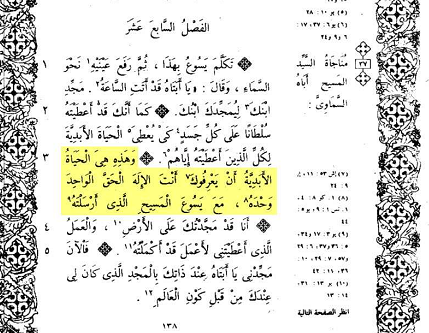 الفَصْلُ السَّابِعَ عَشَرَ
١ تَكَلَّمَ يَسُوعُ بِهَذَا ، ثُمَّ رَفَعَ عَيْنَيْهِ¹ نَحْوَ
السَّمَاءِ ، وَقَالَ : «يَا أَبَتَاهُ قَدْ أَتَتِ السَّاعَةُ² . مَجِّدِ
٢ ابْنَكَ³ لِيُمَجِّدَكَ ابْنُكَ . كَمَا أَنَّكَ قَدْ أَعْطَيْتَهُ
سُلْطَانًا عَلَى كُلِّ جَسَدٍ⁴ كَىْ يُعْطِىَ⁵ الْحَيَاةَ الأَبَدِيَّةَ
٣ لِكُلِّ الَّذِينَ أَعْطَيْتَهُ إِيَّاهُمْ⁶ . وَهَذِهِ هِىَ الْحَيَاةُ
الأَبَدِيَّةُ أَنْ يَعْرِفُوكَ⁷ أَنْتَ الإِلَهَ الْحَقَّ الْوَاحِدَ
وَحْدَهُ⁸ ، مَعَ يَسُوعَ الْمَسِيحِ الَّذِى أَرْسَلْتَهُ⁹
٤ أَنَا قَدْ مَجَّدْتُكَ عَلَى الأَرْضِ¹⁰ ، وَالْعَمَلُ
٥ الَّذِى أَعْطَيْتَنِى لِأَعْمَلَ قَدْ أَكْمَلْتُهُ¹¹ . فَالآنَ
مَجِّدْنِى يَا أَبَتَاهُ عِنْدَ ذَاتِكَ بِالْمَجْدِ الَّذِى كَانَ لِى
عِنْدَكَ مِنْ قَبْلِ كَوْنِ الْعَالَمِ¹² .
١٣٨
٣٧
مُنَاجَاةُ السَّيِّدِ
المَسِيحِ أَبَاهُ
السَّمَاوِىَّ :
انظر الصفحة التالية